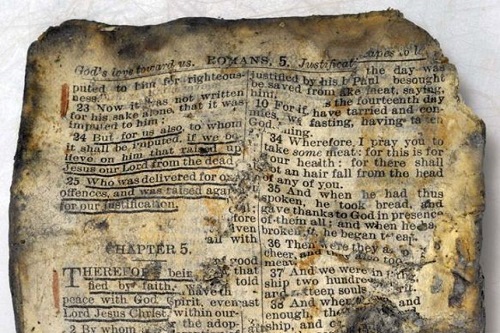 God's love toward us. ROMANS, 5. Justificat
puted to him for righteous-
ness.
23 Now it was not written
for his sake alone, that it was
imputed to him;
24 But for us also, to whom
it shall be imputed, if we be-
lieve on him that raised up
Jesus our Lord from the dead
25 Who was delivered for
offences, and was raised again
for our justification.
fore
even
all with
good
CHAPTER 5.
that
THEREFORE being
told
fied by faith, have
peace with God
Spirit, even as
Lord Jesus Christ
within our-
2 By whom
the adop-
justified by his b Paul besought
the day was
be saved from
take meat, saying,
is the fourteenth day
10 For if have tarried and con-
fasting, having
God,
34 Wherefore I pray you to
take some meat: for this is for
your health: for there shall
not an hair fall from the head
of any of you.
35 And when he had thus
spoken, he took bread, and
gave thanks to God in presence
of them all; and when he
broken it, he began to eat.
36 Then were they
cheer, and also
meat.
37 And we were in
ship two hundred
sixteen souls
38 And when
enough, the
ship, and